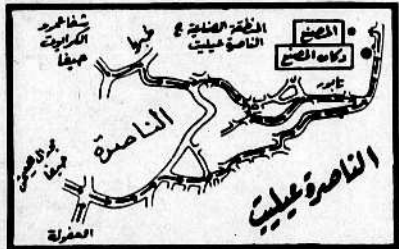 شفاعمرو
الكرايوت
حيفا
طبريا
المنطقة الصناعية ج
الناصرة عيليت
المصنع
دكان المصنع
تابور
الناصرة
مجدال هعيمق
حيفا
العفولة
الناصرة عيليت